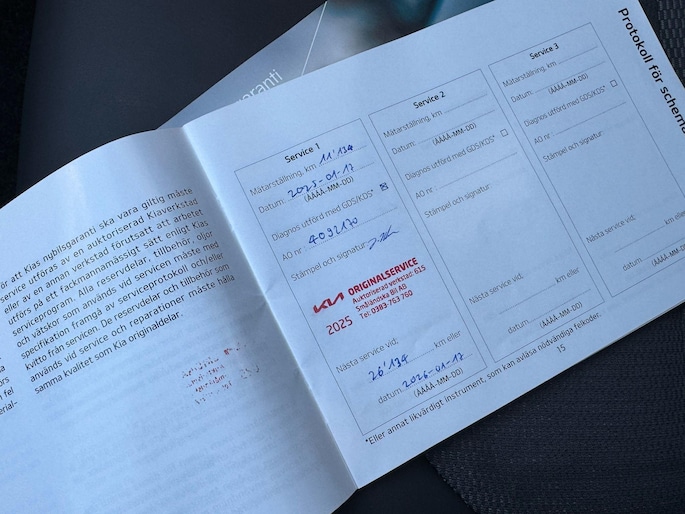 aranti
ör att Kias nybilsgaranti ska vara giltig måste
service utföras av en auktoriserad Kiaverkstad
eller av en annan verkstad förutsatt att arbetet
utförs på ett fackmannamässigt sätt enligt Kias
serviceprogram. Alla reservdelar, tillbehör, oljor
och vätskor som används vid servicen måste med
specifikation framgå av serviceprotokoll och/eller
kvitto från servicen. De reservdelar och tillbehör som
används vid service och reparationer måste hålla
samma kvalitet som Kia originaldelar.
Protokoll för schema
Service 1
Mätarställning, km 11'134
Datum: 2025-01-17
(ÅÅÅÅ-MM-DD)
Diagnos utförd med GDS/KDS* ☒
AO nr: 4092170
Stämpel och signatur:
KIA ORIGINALSERVICE
Auktoriserad verkstad: 615
Småländska Bil AB
2025 Tel: 0383-763 760
Nästa service vid:
26'134 km eller
datum: 2026-01-17
(ÅÅÅÅ-MM-DD)
Service 2
Mätarställning, km
Datum:
(ÅÅÅÅ-MM-DD)
Diagnos utförd med GDS/KDS* ☐
AO nr:
Stämpel och signatur:
Nästa service vid:
km eller
datum:
(ÅÅÅÅ-MM-DD)
Service 3
Mätarställning, km
Datum:
(ÅÅÅÅ-MM-DD)
Diagnos utförd med GDS/KDS* ☐
AO nr:
Stämpel och signatur:
Nästa service vid:
km eller
datum:
(ÅÅÅÅ-MM-DD)
*Eller annat likvärdigt instrument, som kan avläsa nödvändiga felkoder.
15